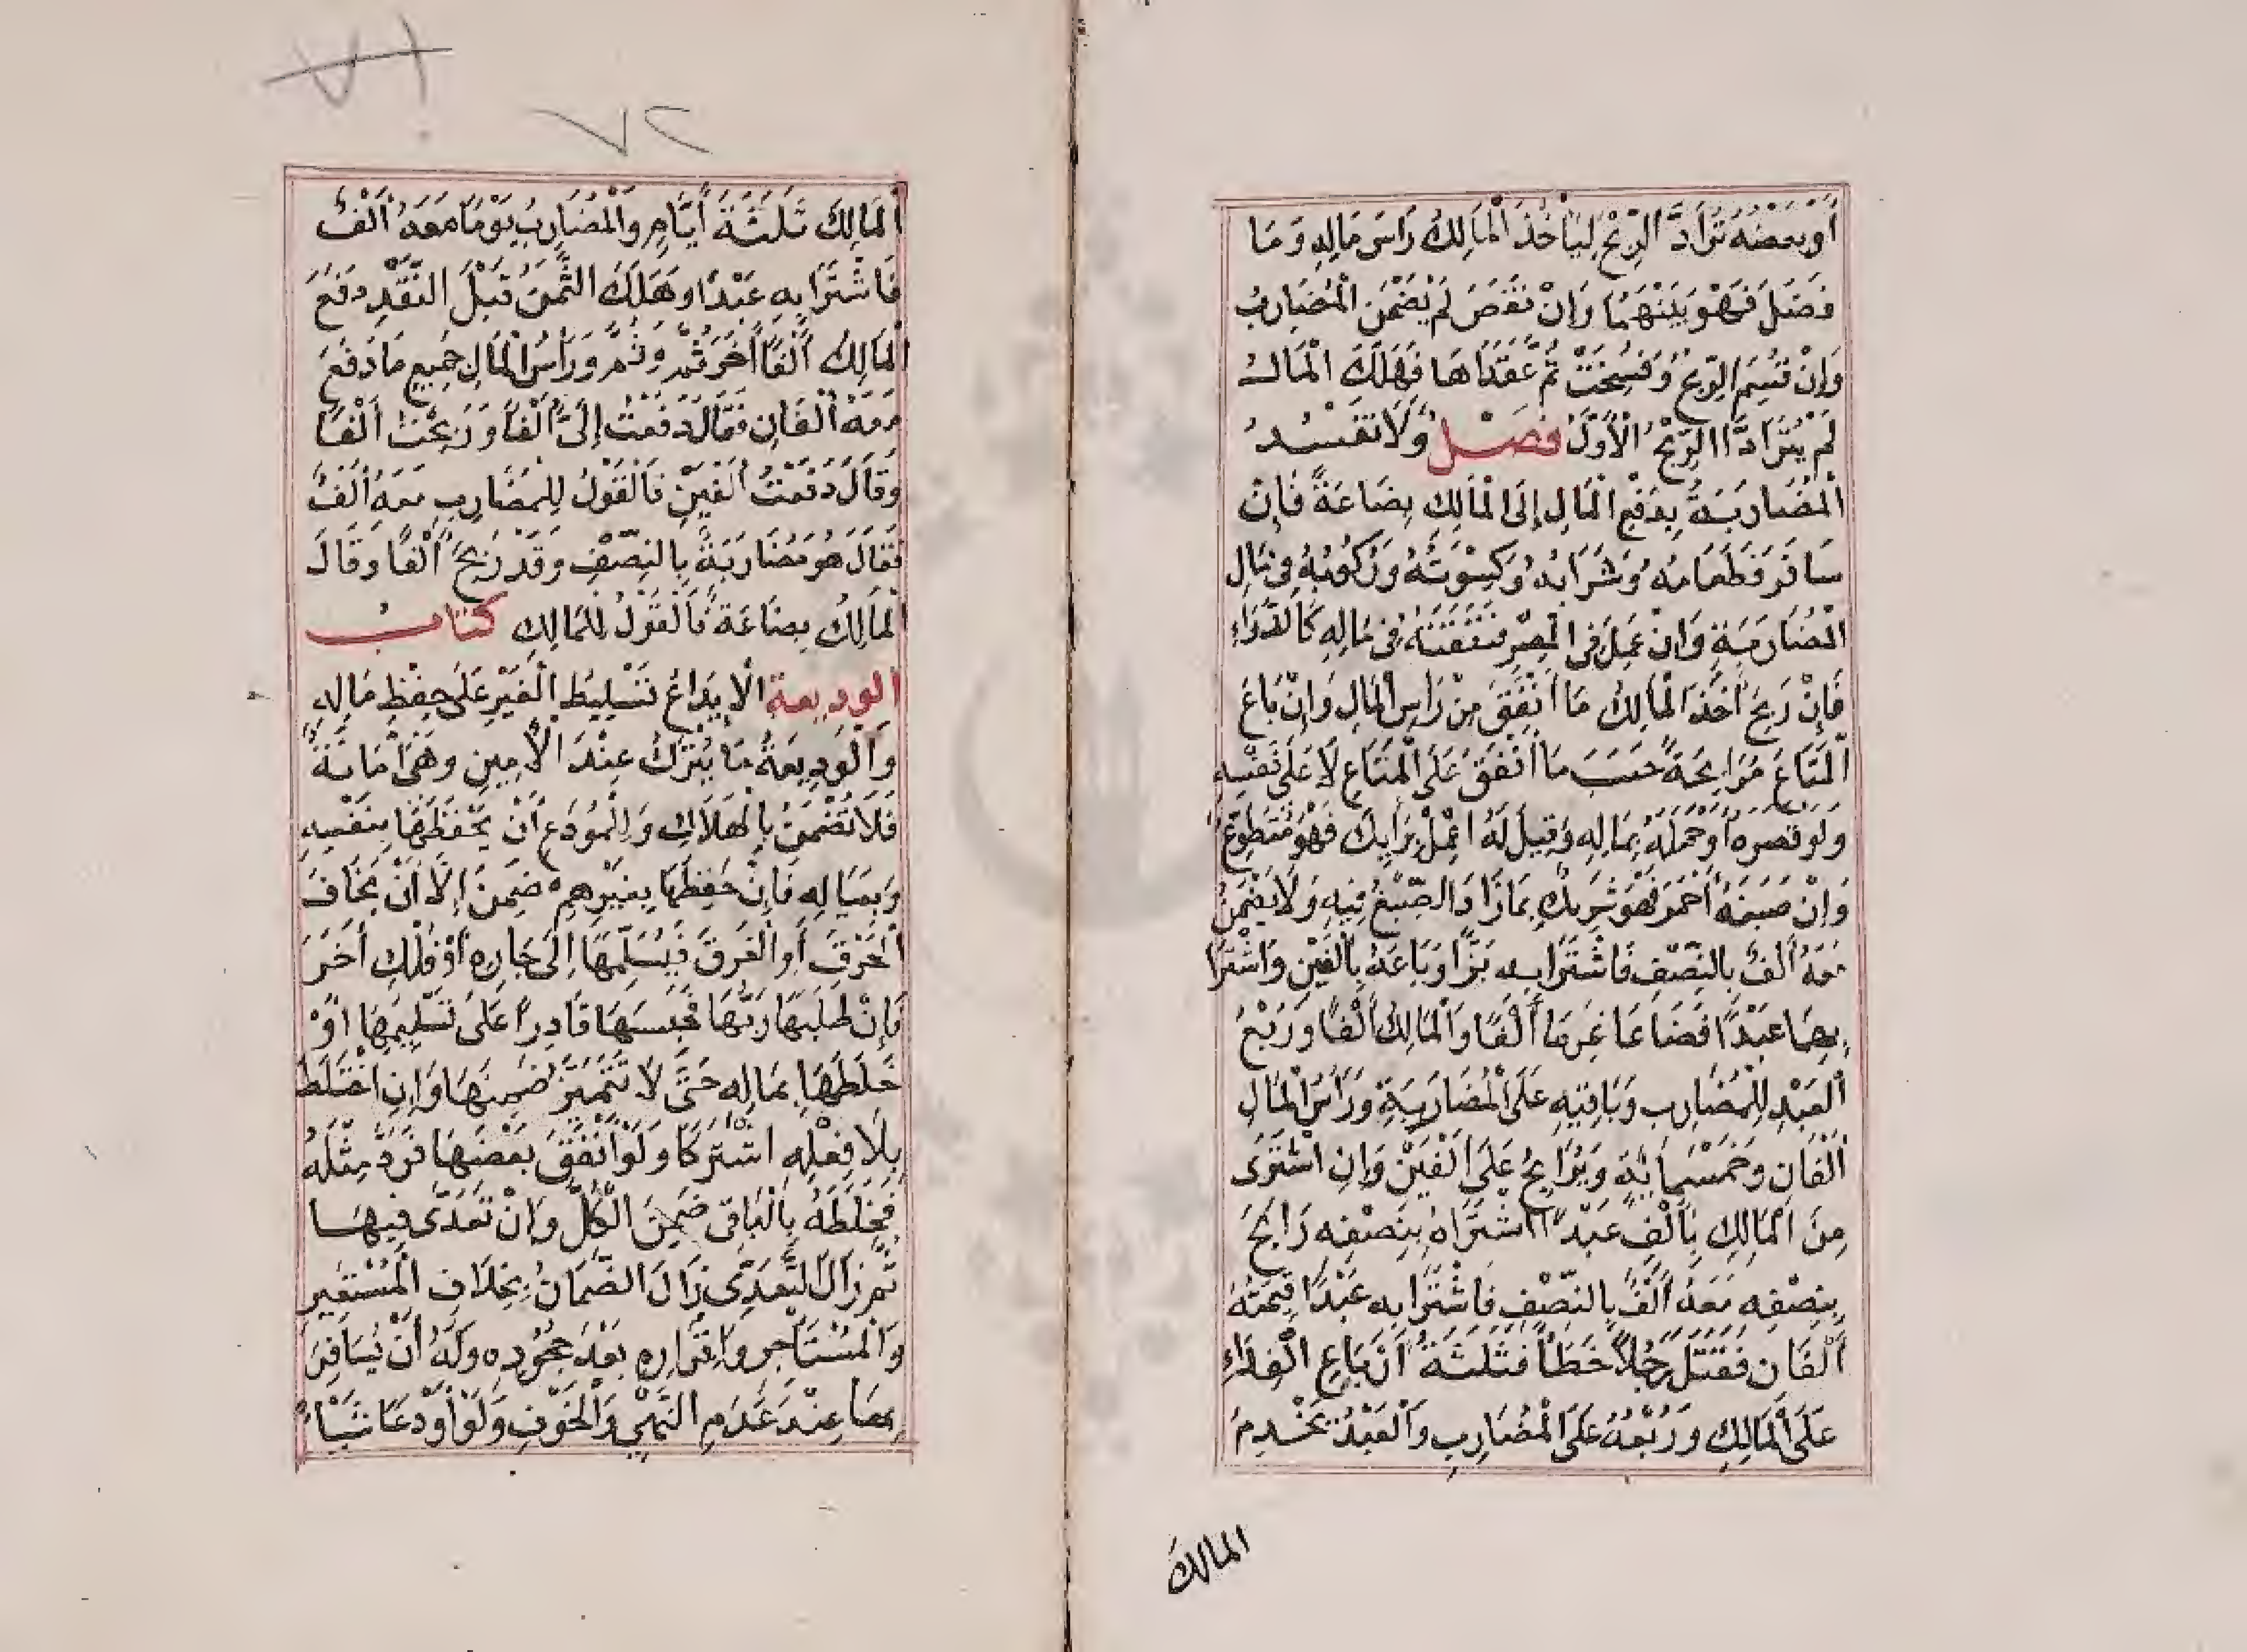 أو بعضه ترادّ الربح ليأخذ المالك رأس ماله وما
فضل فهو بينهما وإن نقص لم يضمن المضارب
وإن قسم الربح وفسخت ثم عقداها فهلك المال
لم يترادّا الربح الأول فصل ولا تفسد
المضاربة بدفع المال إلى المالك بضاعة فإن
سافر فطعامه وشرابه وكسوته وركوبه في مال
المضاربة وإن عمل في المصر فنفقته في ماله كالدواء
فإن ربح أخذ المالك ما أنفق من رأس المال وإن باع
المتاع مرابحة حسب ما أنفق على المتاع لا على نفسه
ولو قصره أو حمله بماله وقيل له اعمل برأيك فهو متطوع
وإن صبغه أحمر فهو شريك بما زاد الصبغ فيه ولا يضمن
معه ألف بالنصف فاشترا به بزا وباعه بألفين واشترا
بهما عبدا فضاعا غرما ألفا والمالك ألفا وربع
العبد للمضارب وباقيه على المضاربة ورأس المال
ألفان وخمسمائة ويرابح على ألفين وإن اشترى
من المالك بألف عبدا اشتراه بنصفه رابح
بنصفه معه ألف بالنصف فاشترا به عبدا قيمته
ألفان فقتل رجلا خطأ فثلثة أرباع الفداء
على المالك وربعه على المضارب والعبد يخدم
المالك
٧٢
المالك ثلثة أيام والمضارب يوما معه ألف
فاشترا به عبدا وهلك الثمن قبل النقد دفع
المالك ألفا أخر ثم وثم ورأس المال جميع ما دفع
معه ألفان فقال دفعت إليّ ألفا وربحت ألفا
وقال دفعت ألفين فالقول للمضارب معه ألف
فقال هو مضاربة بالنصف وقد ربح ألفا وقال
المالك بضاعة فالقول للمالك كتاب
الوديعة الإيداع تسليط الغير على حفظ ماله
والوديعة ما يترك عند الأمين وهي أمانة
فلا تضمن بالهلاك وللمودع أن يحفظها بنفسه
وبعياله فإن حفظها بغيرهم ضمن إلا أن يخاف
الحرق أو الغرق فيسلمها إلى جاره أو فلك أخر
فإن طلبها ربها فحبسها قادرا على تسليمها أو
خلطها بماله حتى لا تتميز ضمنها وإن اختلط
بلا فعله اشتركا ولو أنفق بعضها فرد مثله
فخلطه بالباقي ضمن الكل وإن تعدى فيها
ثم زال التعدي زال الضمان بخلاف المستعير
والمستأجر وإقراره بعد جحوده وله أن يسافر
بها عند عدم النهي والخوف ولو أودعا شيأ